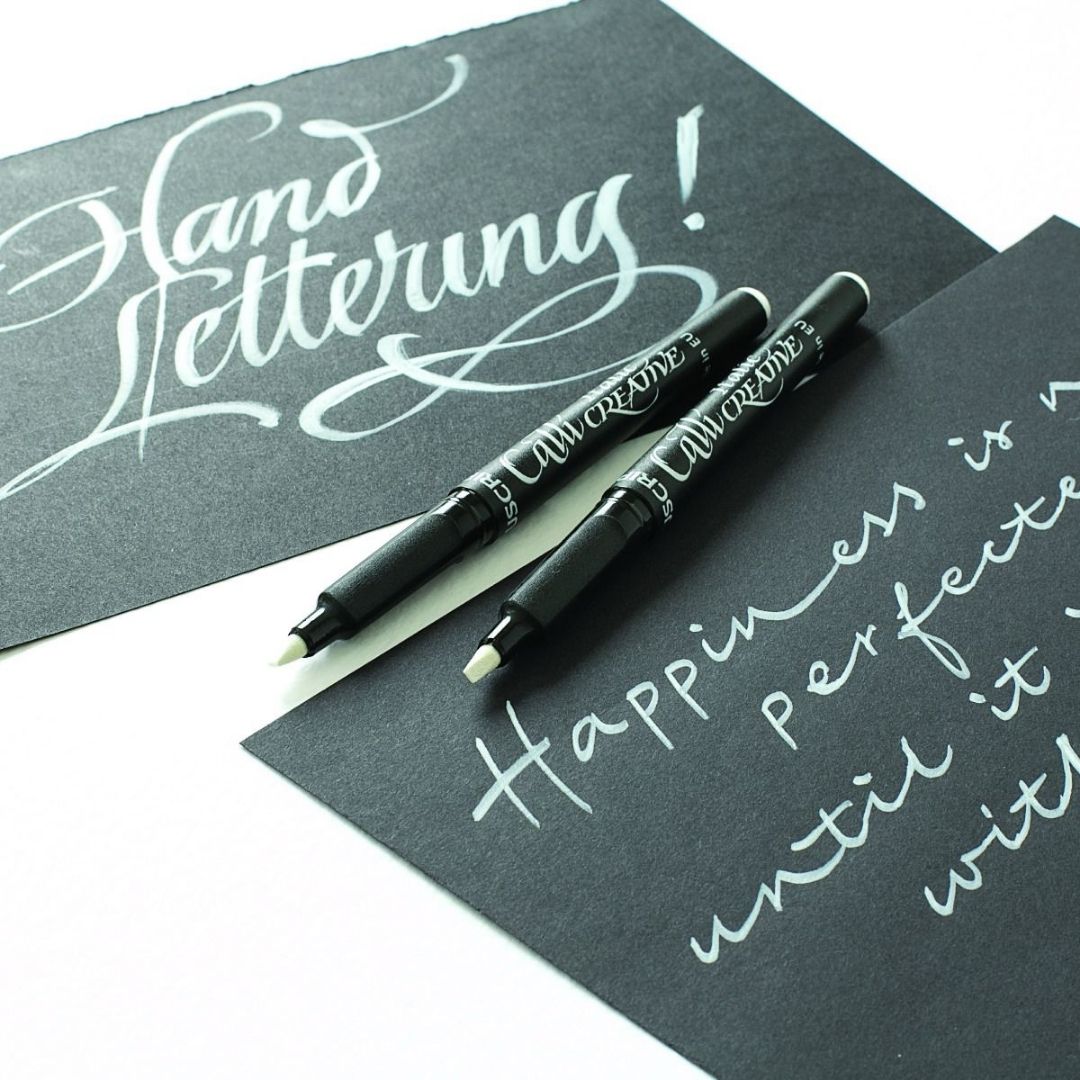 Hand
Lettering!
USCRI Calli CREATIVE in EU
USCRI Calli CREATIVE in EU
Happiness is
perfecte
until it
with